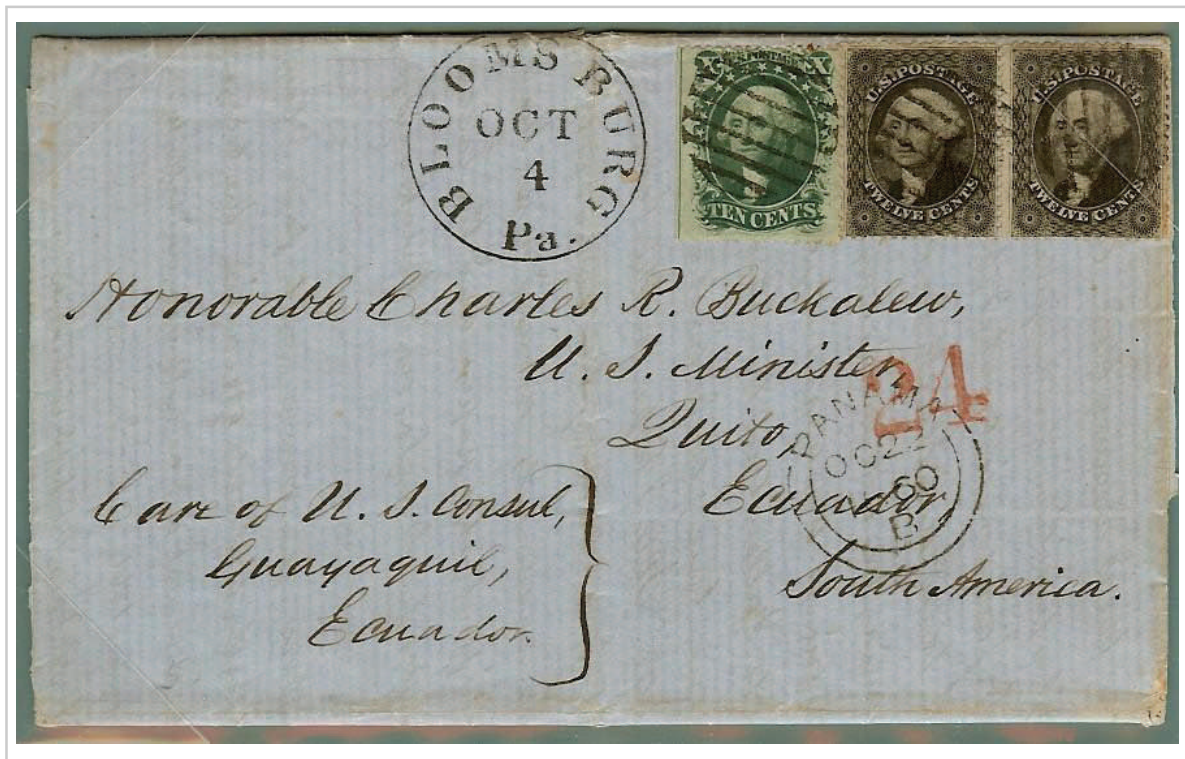 BLOOMSBURG
OCT
4
Pa.
X X
U.S. POSTAGE
TEN CENTS
U.S. POSTAGE
TWELVE CENTS
U.S. POSTAGE
TWELVE CENTS
Honorable Charles R. Buckalew,
U. S. Minister,
24
Quito,
Ecuador,
South America.
PANAMA
OC 22
60
B
Care of U. S. Consul,
Guayaquil,
Ecuador.